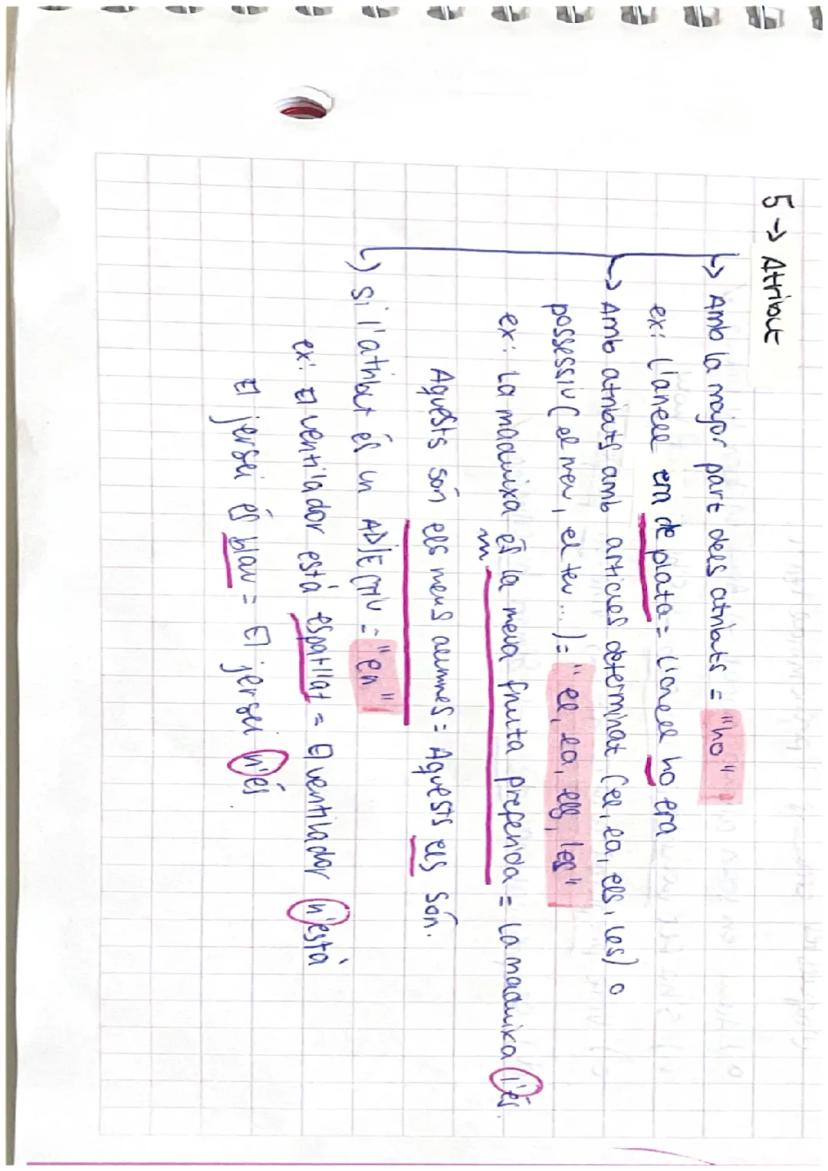 5 → Atribut
↳ Amb la major part dels atributs = "ho"
ex: L'anell era de plata = L'anell ho era
↳ Amb atributs amb articles determinat (el, la, els, les) o
possessiu (el meu, el teu...) = "el, la, els, les"
ex: La maduixa és la meva fruita preferida = La maduixa l'és.
Aquests són els meus alumnes = Aquests els són.
↳ Si l'atribut és un ADJECTIU = "en"
ex: El ventilador está espatllat = El ventilador n'está
El jersei és blau = El jersei n'és